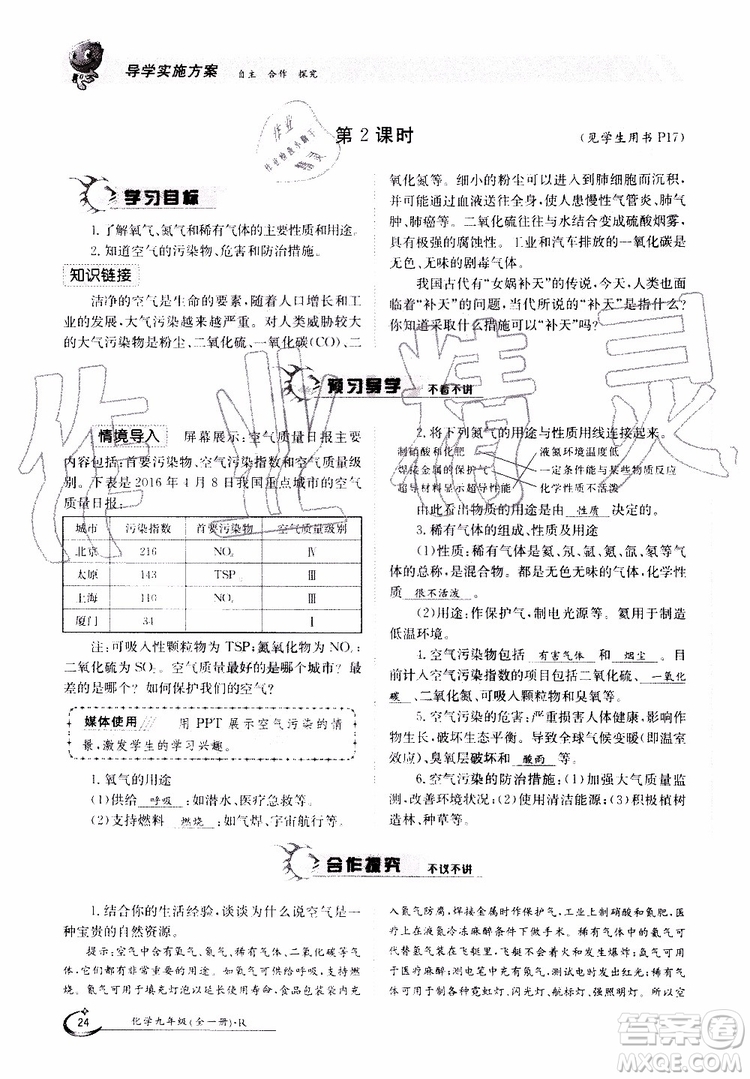 导学实施方案 自主 合作 探究
第2课时
(见学生用书P17)
学习目标
1.了解氧气、氮气和稀有气体的主要性质和用途。
2.知道空气的污染物、危害和防治措施。
知识链接
洁净的空气是生命的要素,随着人口增长和工
业的发展,大气污染越来越严重。对人类威胁较大
的大气污染物是粉尘、二氧化硫、一氧化碳(CO)、二
氧化氮等。细小的粉尘可进入到肺细胞而沉积,
并可能通过血液送往全身,使人患慢性气管炎、肺气
肿、肺癌等。二氧化硫往往与水结合变成硫酸烟雾,
具有很强的腐蚀性。工业和汽车排放的一氧化碳是
无色、无味的剧毒气体。
我国古代有“女娲补天”的传说,今天,人类也面
临着“补天”的问题,当今所说的“补天”是指什么?
你知道采取什么措施可以“补天”吗?
预习导学 不看不讲
情境导入 屏幕展示:空气质量日报主要
内容包括:首要污染物、空气污染指数和空气质量级
别。下表是2016年4月8日我国重点城市的空气
质量日报:
城市 污染指数 首要污染物 空气质量级别
北京 216 NO₂ Ⅳ
太原 143 TSP Ⅲ
上海 110 NO₂ Ⅲ
厦门 34 Ⅰ
注:可吸入性颗粒物为TSP;氮氧化物为NO₂;
二氧化硫为SO₂。空气质量最好的是哪个城市?最
差的是哪个?如何保护我们的空气?
媒体使用 用PPT展示空气污染的情
景,激发学生的学习兴趣。
1.氧气的用途
(1)供给 呼吸 :如潜水、医疗急救等。
(2)支持燃料 燃烧 :如气焊、宇宙航行等。
2.将下列氮气的用途与性质用线连接起来。
制硝酸和化肥 液氮环境中
焊接金属的保护气 一定条件能与某些物质反应
超导材料显示超导性能 化学性质不活泼
由此看出物质的用途是由 性质 决定的。
3.稀有气体的组成、性质及用途
(1)性质:稀有气体是氦、氖、氩、氪、氙等气
体的总称,是混合物。都是无色无味的气体,化学性
质 很不活泼 。
(2)用途:作保护气,制电光源等。氦用于制造
低温环境。
4.空气污染物包括 有害气体 和 烟尘 。目
前计入空气污染指数的项目为二氧化硫、 一氧化
碳 、二氧化氮、可吸入颗粒物和臭氧等。
5.空气污染的危害:严重损害人体健康,影响农作物,
破坏生态平衡。导致全球气候变暖(即温室
效应)、臭氧层破坏和 酸雨 等。
6.空气污染的防治措施:(1)加强大气质量监
测,改善环境状况;(2)使用清洁能源;(3)积极植树
造林、种草等。
合作探究 不议不讲
1.结合你的生活经验,谈谈为什么说空气是一
种宝贵的自然资源。
提示:空气中含有氧气、氮气、稀有气体、二氧化碳等,
它们都有重要的用途。如氧气供给呼吸,支持燃烧;
氮气可用于填充灯泡以延长使用寿命,食品包装时充
入氮气防腐,焊接金属时作保护气,工业上制硝酸和氮肥,医
疗上用液氮冷冻麻醉等;稀有气体在通电时能发出不同颜色
的光,可制作各种霓虹灯、闪光灯、航标灯、强照明灯等。
24 化学九年级(全一册)·R
作业精灵
答案圈
MXQE.COM